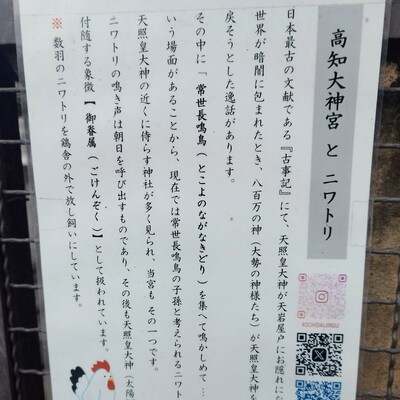 高知大神宮 と ニワトリ
日本最古の文献である『古事記』にて、天照皇大神が天岩屋戸にお隠れにな
世界が暗闇に包まれたとき、八百万の神（大勢の神様たち）が天照皇大神を
戻そうとした逸話があります。
その中に「常世長鳴鳥（とこよのながなきどり）を集へて鳴かしめて…
いう場面があることから、現在では常世長鳴鳥の子孫と考えられるニワト
天照皇大神の近くに侍らす神社が多く見られ、当宮も その一つです。
ニワトリの鳴き声は朝日を呼び出すものであり、その後も天照皇大神（太陽
付随する象徴【 御眷属（ごけんぞく）】として扱われています。
※ 数羽のニワトリを鶏舎の外で放し飼いにしています。
KOCHIDAIJINGU